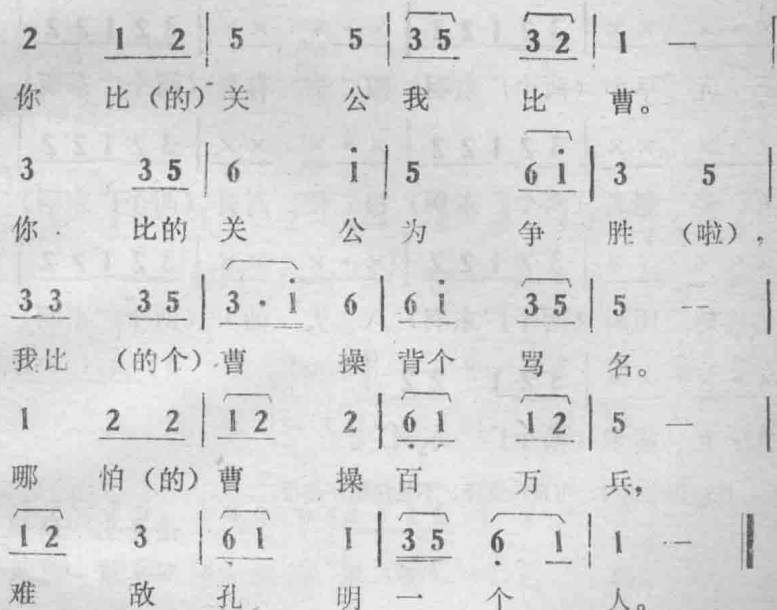 2 1 2 | 5 5 | 3 5 3 2 | 1 — |
你 比（的）关 公 我 比 曹。
3 3 5 | 6 i̇ | 5 6 i̇ | 3 5 |
你 比的 关 公 为 争 胜 （啦），
3 3 3 5 | 3 · i̇ 6 | 6 i̇ 3 5 | 5 — |
我比 （的个）曹 操 背个 骂 名。
1 2 2 | 1 2 2 | 6̣ 1 1 2 | 5 — |
哪 怕（的）曹 操 百 万 兵，
1 2 3 | 6̣ 1 1 | 3 5 6̣ 1 | 1 — ‖
难 敌 孔 明 一 个 人。